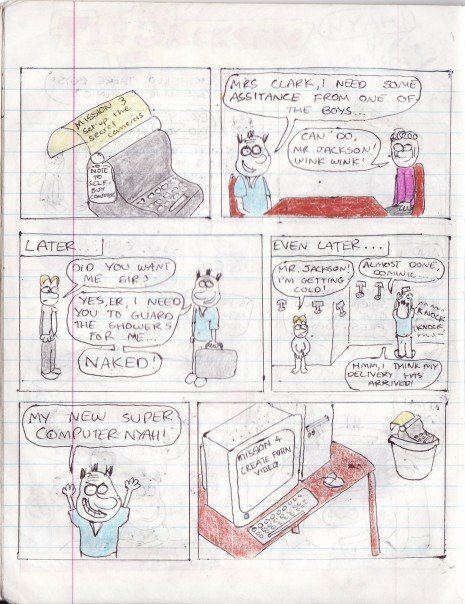 MISSION 3
set up the
secret cameras
NOTE
TO
SELF:
BUY
COMPUTER
MRS CLARK, I NEED SOME
ASSITANCE FROM ONE OF
THE BOYS...
CAN DO,
MR JACKSON!
WINK WINK!
LATER...
DID YOU WANT
ME SIR?
YES, ER, I NEED
YOU TO GUARD
THE SHOWERS
FOR ME...
NAKED!
EVEN LATER...
MR. JACKSON!
I'M GETTING
COLD!
ALMOST DONE,
DOMINIC...
KNOCK
KNOCK
HMM, I THINK MY
DELIVERY HAS
ARRIVED!
MY NEW SUPER
COMPUTER NYAH!
MISSION 4
CREATE PORN
VIDEO